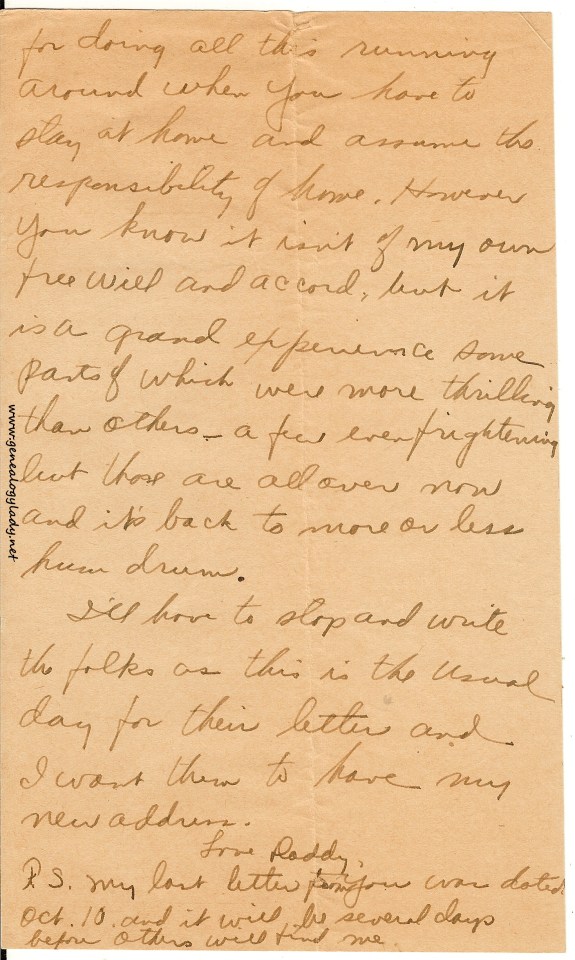 for doing all this running
around when you have to
stay at home and assume the
responsibility of home. However
you know it isn't of my own
free will and accord, but it
is a grand experience some
parts of which were more thrilling
than others — a few even frightening
but those are all over now
and it's back to more or less
hum drum.
I'll have to stop and write
the folks as this is the usual
day for their letter and
I want them to have my
new address.
Love Daddy.
P.S. My last letter from you was dated
Oct. 10. and it will be several days
before others will find me.
www.genealogylady.net